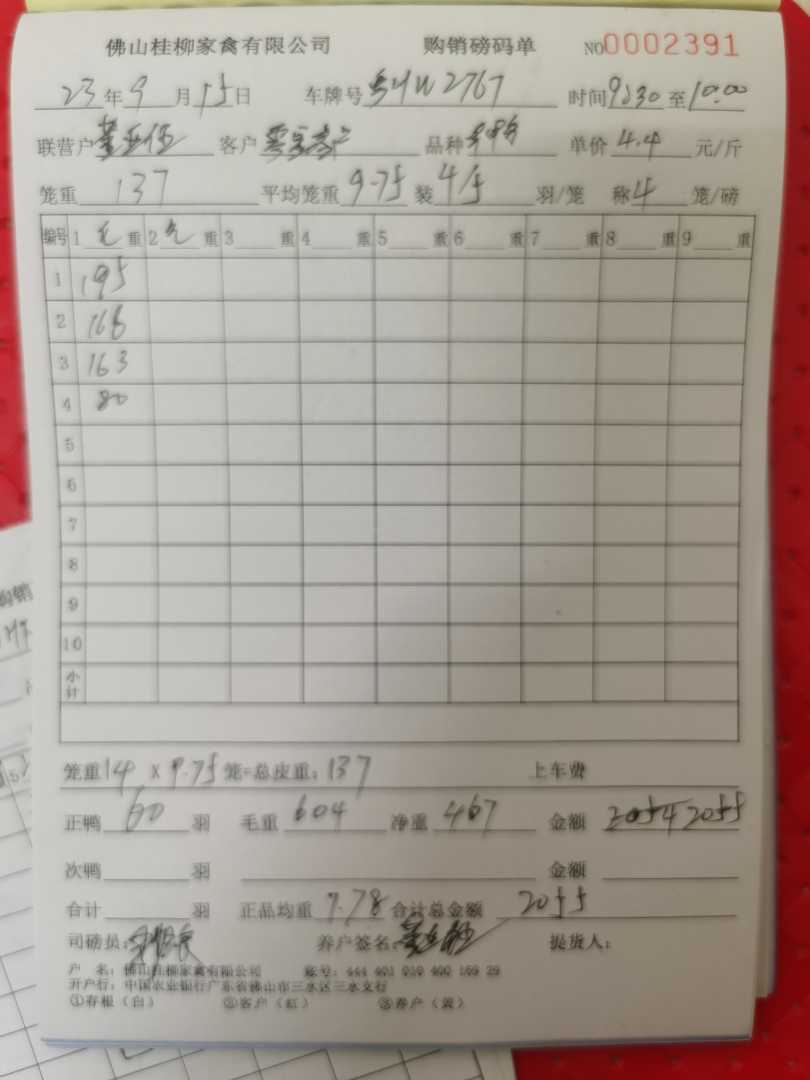 佛山桂柳家禽有限公司 购销磅码单 NO0002391
23年9月15日 车牌号 2767 时间9:30至10:00
联营户 客户 品种 单价4.4元/斤
笼重137 平均笼重9.75装4/5羽/笼 称4笼/磅
编号 1毛重 2毛重 3重 4重 5重 6重 7重 8重 9重
1 195
2 166
3 163
4 80
5
6
7
8
9
10
小计
笼重14 X 9.75笼=总皮重:137 上车费
正鸭60羽 毛重604 净重467 金额2054 2055
次鸭 羽 金额
合计 羽 正品均重7.78 合计总金额2055
司磅员: 养户签名: 提货人:
户 名:佛山桂柳家禽有限公司 账号:444 401 010 400 169 29
开户行:中国农业银行广东省佛山市三水区三水支行
①存根(白) ②客户(红) ③养户(黄)